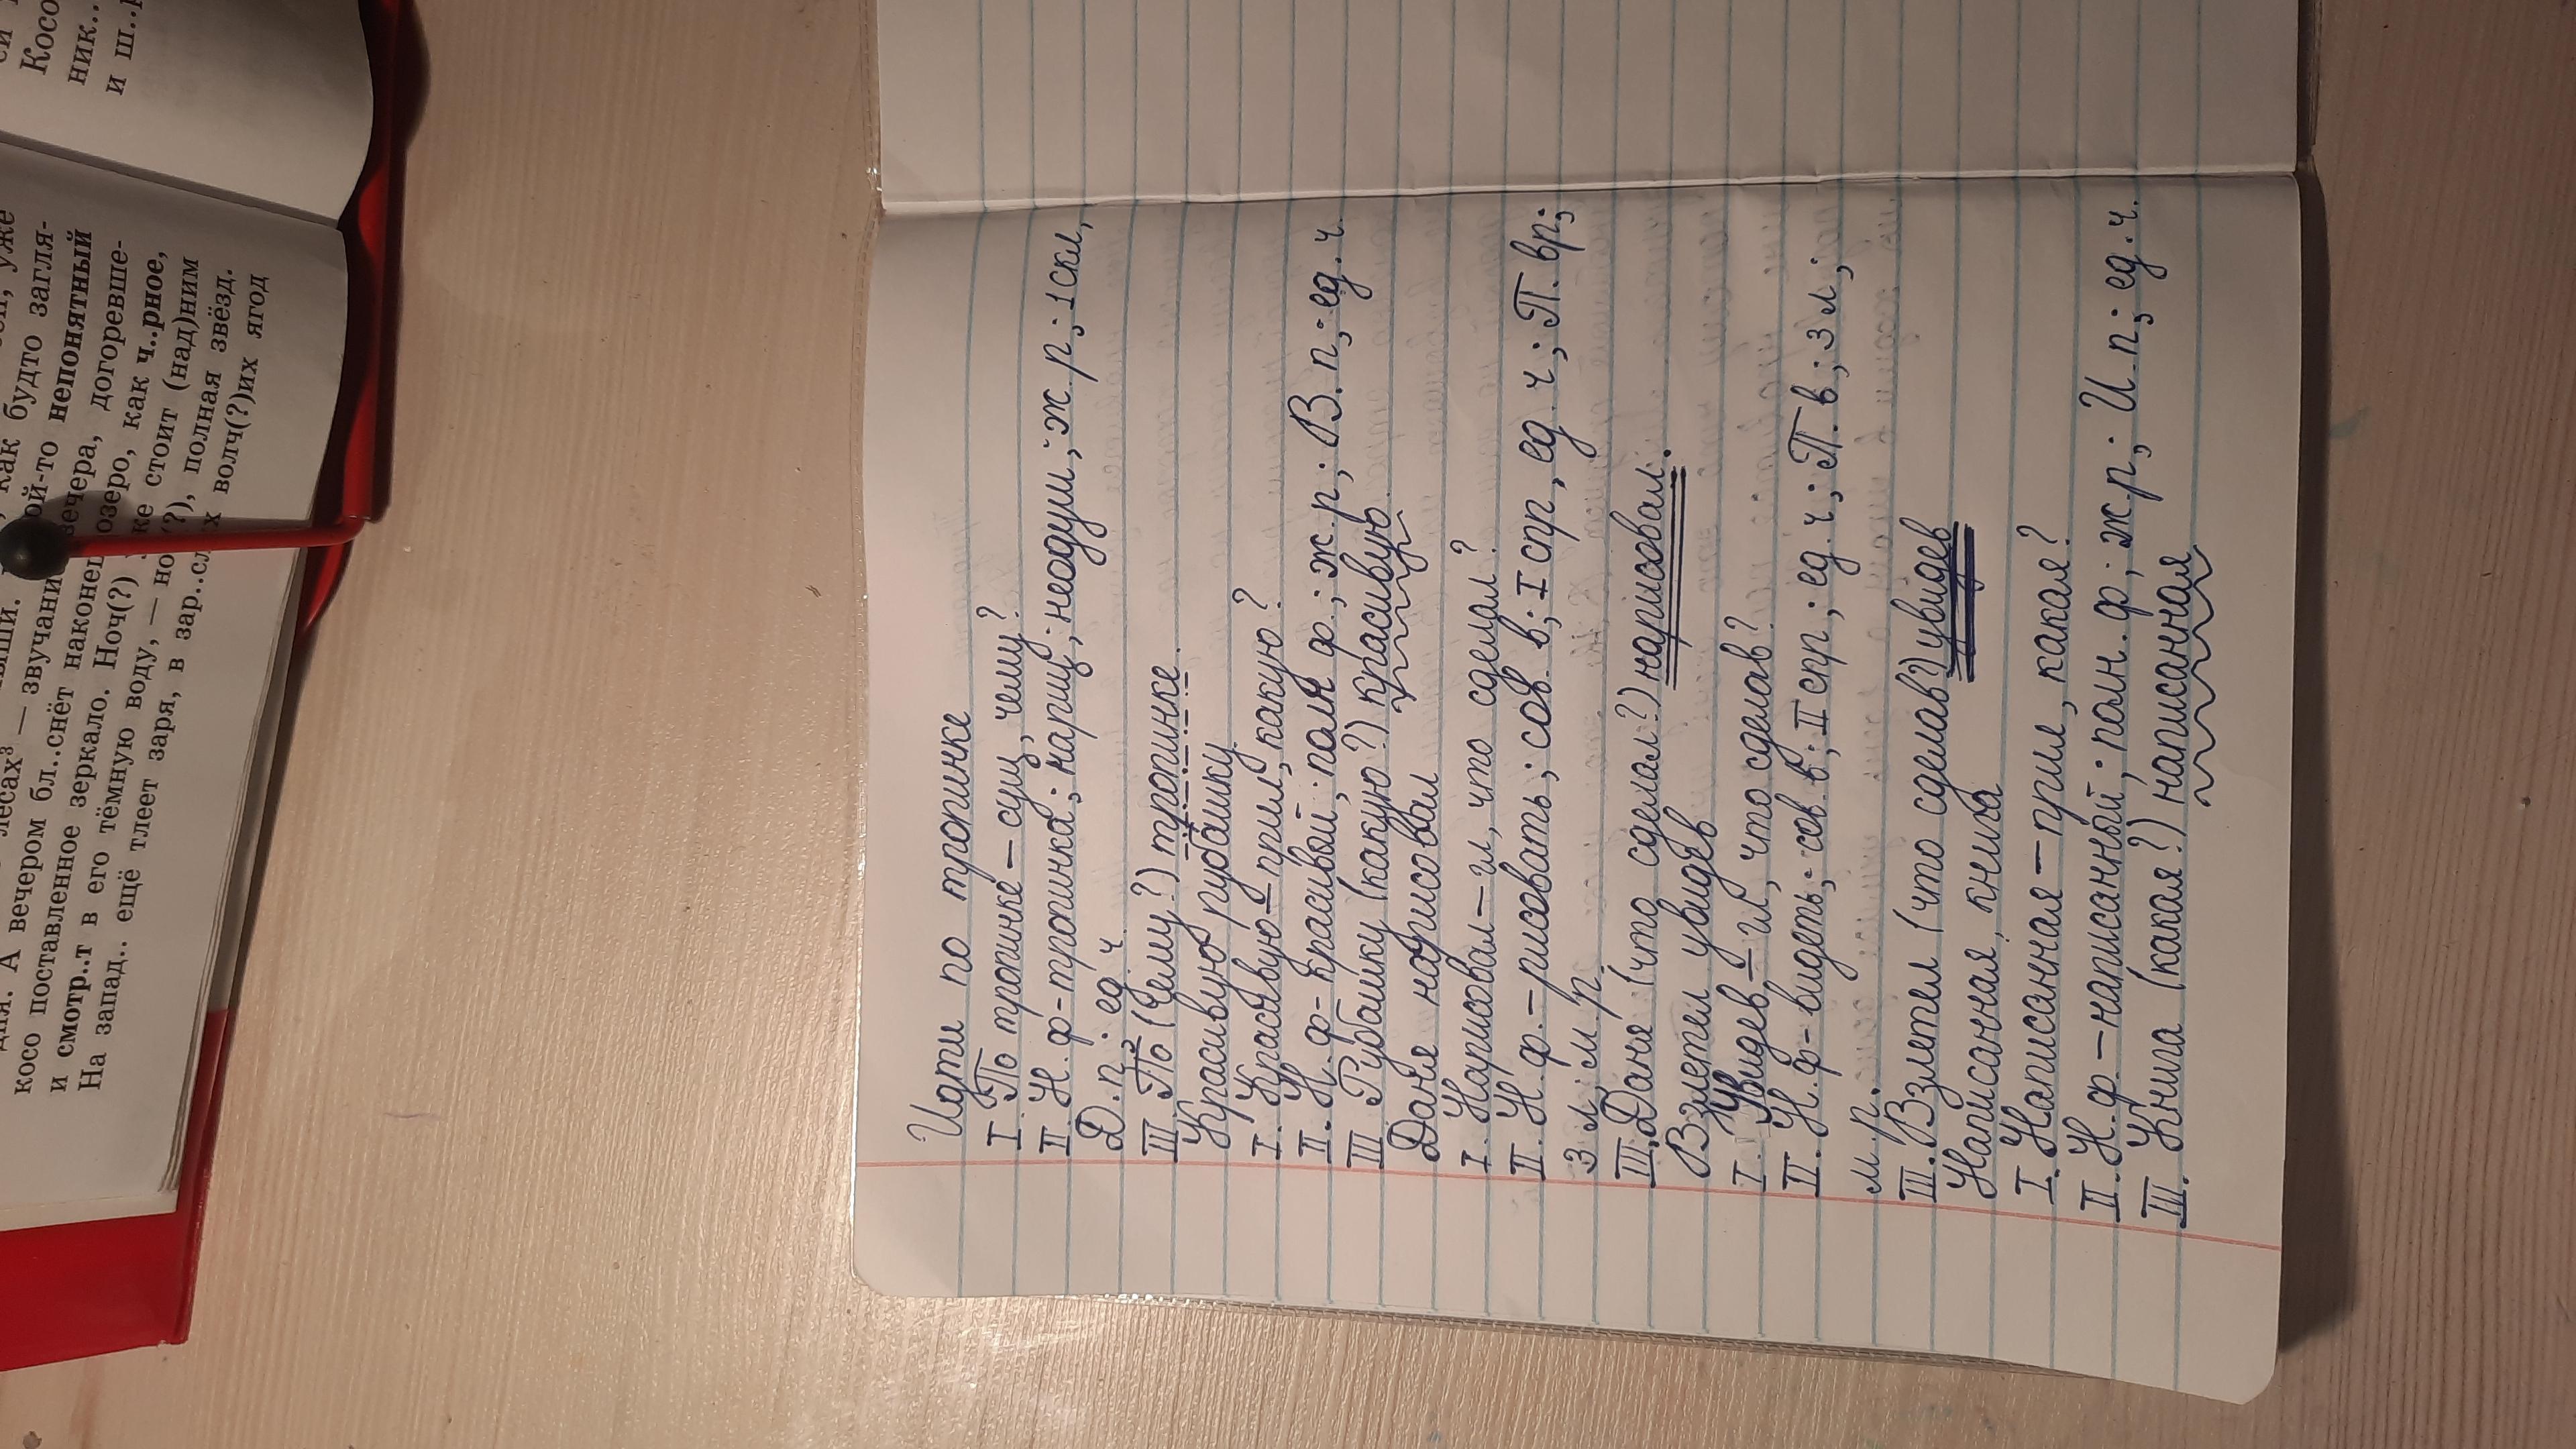 Косо
ник..
и ш..р
дня. А вечером бл..снёт наконец озеро, как ч..рное,
косо поставленное зеркало. Ноч(?) стоит (над)ним
и смотр..т в его тёмную воду, — но (?), полная звёзд.
На запад.. ещё тлеет заря, в зар..сл х волч(?)их ягод
лесах³ — звучание вечера, догоревше-
ой-то непонятный
как будто загля-
уже
Идти по тропинке
I. По тропинке – сущ, чему?
II. Н.ф-тропинка; нариц; неодуш; ж.р; 1скл,
Д.п; ед.ч
III. По (чему?) тропинке.
Красивую рубашку
I. Красивую – прил, какую?
II. Н.ф-красивый; полн ф; ж.р; В.п; ед.ч.
III. Рубашку (какую?) красивую
Даня нарисовал
I. Нарисовал – гл, что сделал?
II. Н.ф.–рисовать; сов.в; I спр, ед.ч; П.вр;
3 л; м.р.
III. Даня (что сделал?) нарисовал.
Взлетел увидев
I. Увидев – гл, что сделав?
II. Н.ф-видеть; сов.в; II спр; ед.ч; П.в; 3 л;
м.р.
III. Взлетел (что сделав?) увидев
Написанная, книга
I. Написанная – прил, какая?
II. Н.ф – написанный; полн.ф; ж.р; И.п; ед.ч.
III. Книга (какая?) написанная